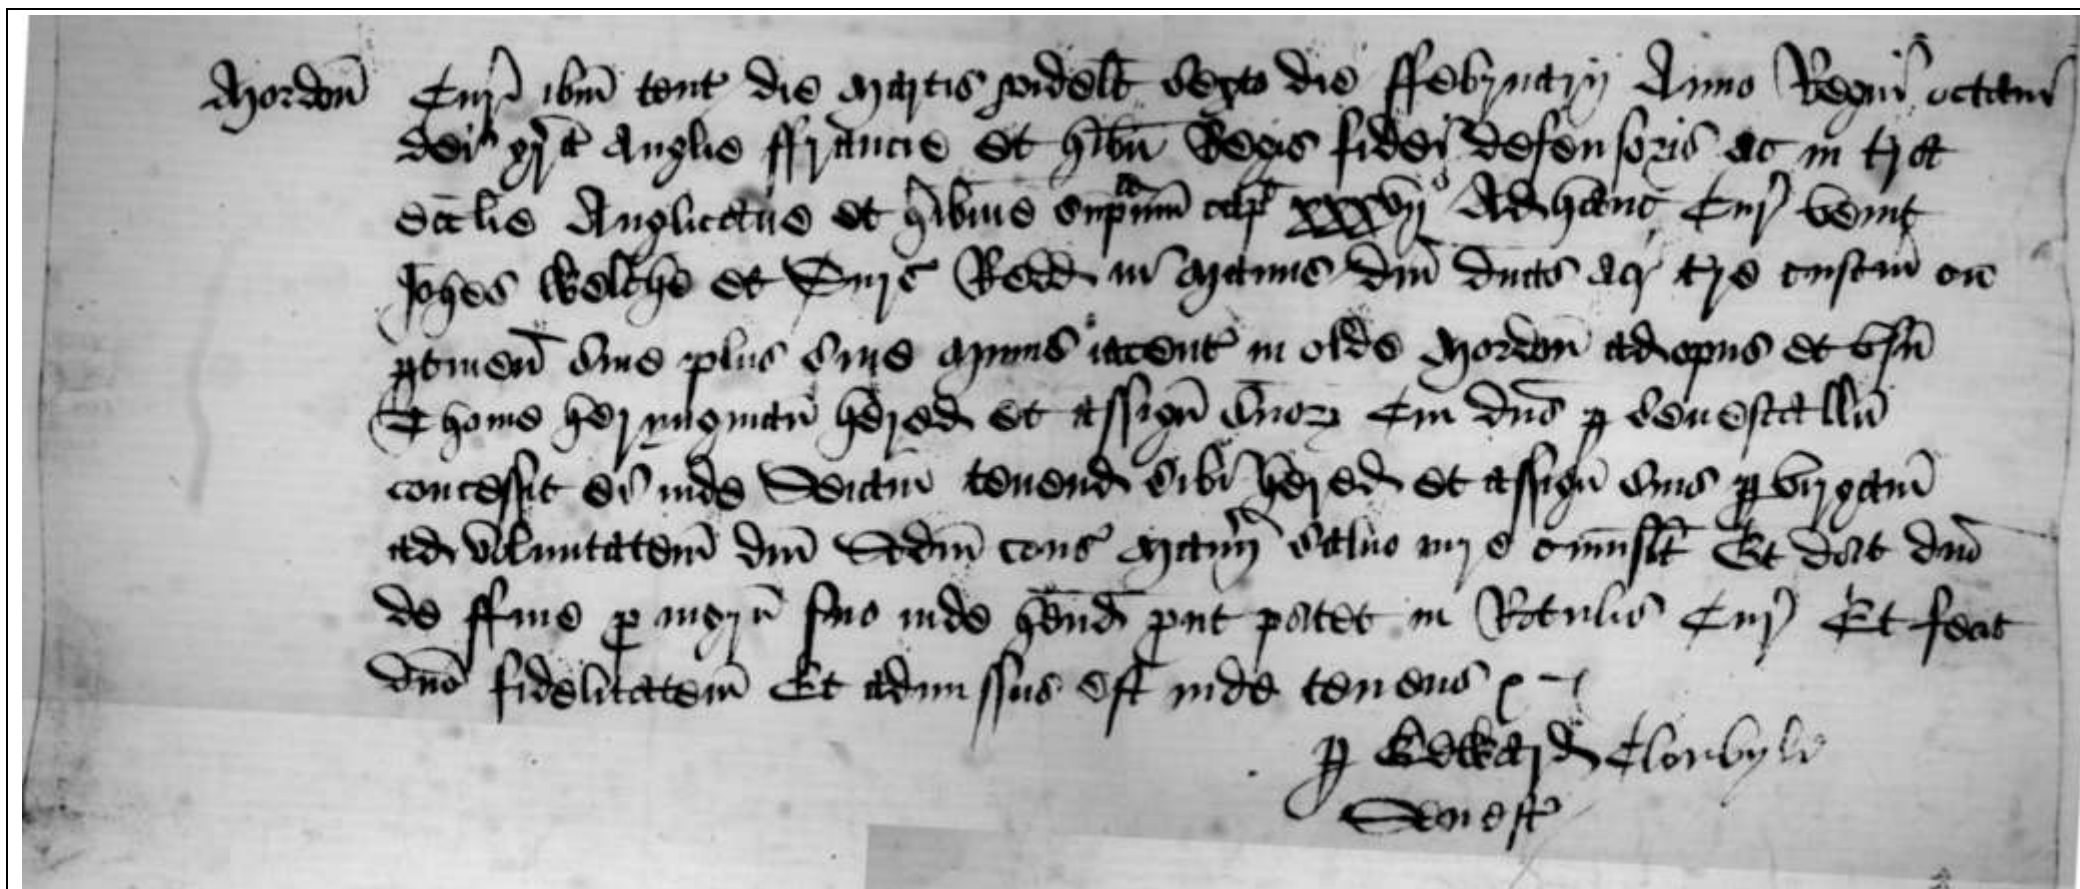 Mordoñ Cur ibm tent die martis videlt sexto die ffebruarij Anno Regni octaui
dei gra Anglie ffrancie et hibn Regis fidei defensoris ac in tra
eccлie Anglicane et hibnie supmm capt xxxvijo Ad hanc Cur venit
Johes Welche et Redd in manus dni duas acr tre custum cu
ptinen siue plus siue minus iacent in olde Mordoñ ad opus et vsu
Thome heryngman hered et assign suor Cui dns p senescallu
concessit ei inde Seisam tenend sibi hered et assign suis p virgam
ad voluntatem dni Scdm cons manij saluo iure Et dat dno
de ffine p ingru suo inde hend put patet in Rotulis Cur Et fecit
dno fidelitatem Et admissus est inde tenens
p Edward
Senest